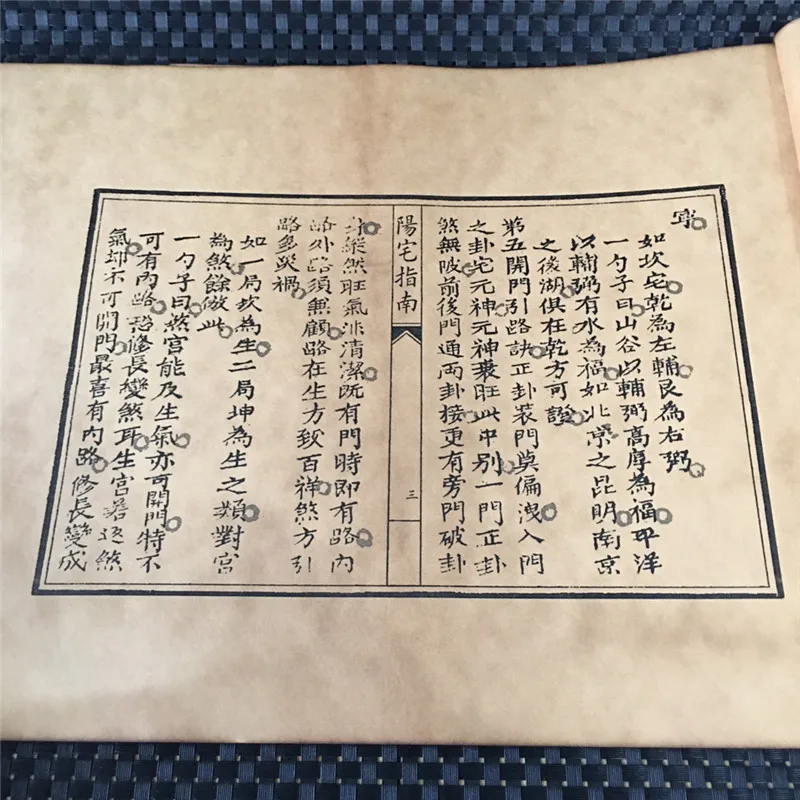 寗
如坎宅乾為左輔艮為右弼
一勺子曰山谷以輔弼高厚為福平洋
以輔弼有水為福如北京之昆明南京
之後湖俱在乾方可證
第五開門引路訣正卦裝門莫偏洩入門
之卦宅元神元神衰旺此中别一門正卦
煞無破前後門通两卦接更有旁門破卦
陽宅指南
三
身縱然旺氣非清潔既有門時即有路内
路外路須無顧路在生方致百祥煞方引
路多災禍
如一局坎為生二局坤為生之類對宫
為煞餘倣此
一勺子曰煞宫能及生氣亦可開門特不
可有内路恐修長變煞耳生宫
氣却不可開門最喜有内路修長變成